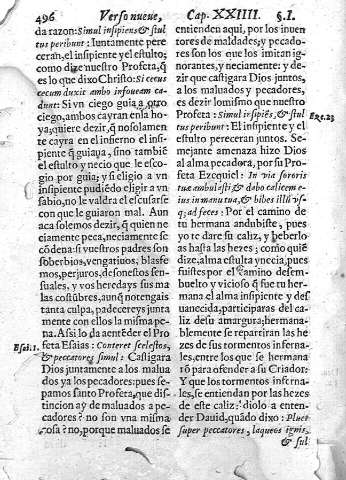 496 Verso nueue, Cap. XXIIII. §. I.
da razon: Simul insipiens & stul
tus peribunt: Iuntamente pere
ceran, el insipiente y el estulto;
como dize nuestro Profeta, q̃
es lo que dixo Christo: Si cæcus
cecum duxit ambo in foueam ca
dunt: Si vn ciego guia a otro
ciego, ambos cayran en la ho
ya; quiere dezir, q̃ no solamen
te cayra en el infierno el insi
piente q̃ guiaya, sino tambiẽ
el estulto y necio que le esco
gio por guia; y si eligio a vn
insipiente pudiẽdo eligir a vn
sabio, no le valdra el escusarse
con que le guiaron mal. Aun
aca solemos dezir, q̃ quien ne
ciamente peca, neciamente se
cõdena: si vuestros padres son
soberbios, vengatiuos, blasfe
mos, perjuros, desonestos sen-
suales, y vos heredays sus ma
las costũbres, aunq̃ no tengais
tanta culpa, padecereys junta
mente con ellos la misma pe-
na. Assi lo da a entẽder el Pro
Esai. 1. feta Esaias: Conteret scelestos,
& peccatores simul: Castigara
Dios juntamente a los malua
dos y a los pecadores: pues se-
pamos santo Profeta, que dis-
tincion ay de maluados a pe-
cadores? no son vna misma
cosa? no, porque maluados se
entienden aqui, por los inuen
tores de maldades; y pecado-
res son los que los imitan ig-
norantes, y neciamente: y de-
zir que castigara Dios juntos,
a los maluados y pecadores,
es dezir lo mismo que nuestro
Profeta: Simul insipiẽs, & stul
tus peribunt: El insipiente y el Eze. 23
estulto pereceran juntos. Se-
mejante amenaza hizo Dios
al alma pecadora, por su Pro
feta Ezequiel: In via sororis
tuæ ambulasti, & dabo calicem e
ius in manu tua, & bibes illũ vs-
q; ad feces: Por el camino de
tu hermana andubiste, pues
yo te dare su caliz, y beberlo
as hasta las hezes; como quiẽ
dize, alma estulta y necia, pues
fuistes por el camino desem-
buelto y vicioso q̃ fue tu her-
mana el alma insipiente y des
uanecida, participaras del ca-
liz desu amargura; hermana-
blemente se repartiran las he
zes de sus tormentos inferna-
les, entre los que se hermana
rõ para ofender a su Criador:
Y que los tormentos inferna-
les, se entiendan por las hezes
de este caliz; diolo a enten-
der Dauid, quãdo dixo: Pluet
super peccatores, laqueos ignis,
& sul